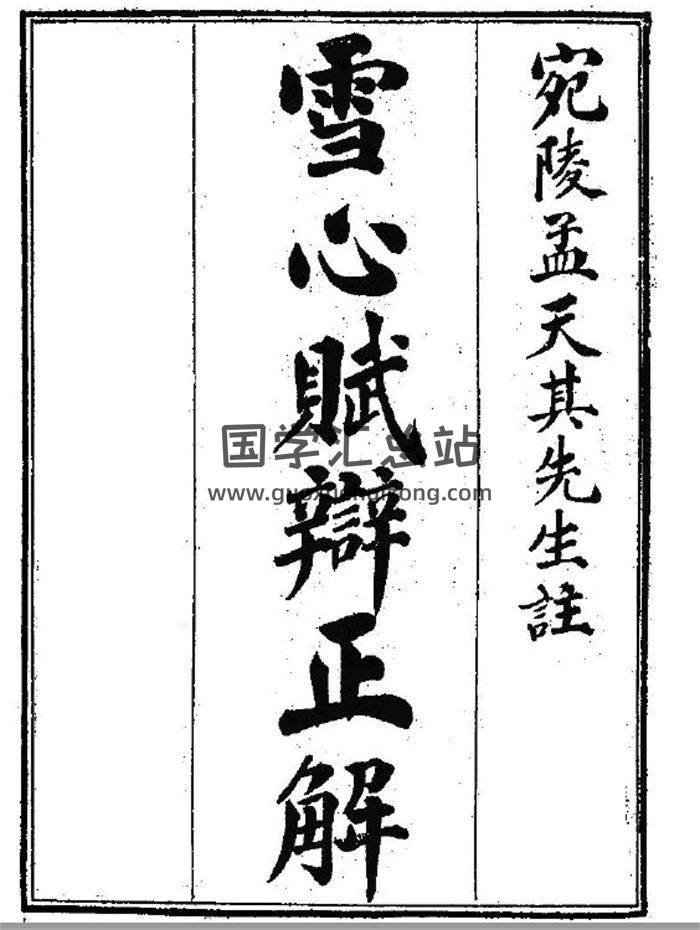 宛陵孟天其先生註
雪心賦辯正解
国学汇总站